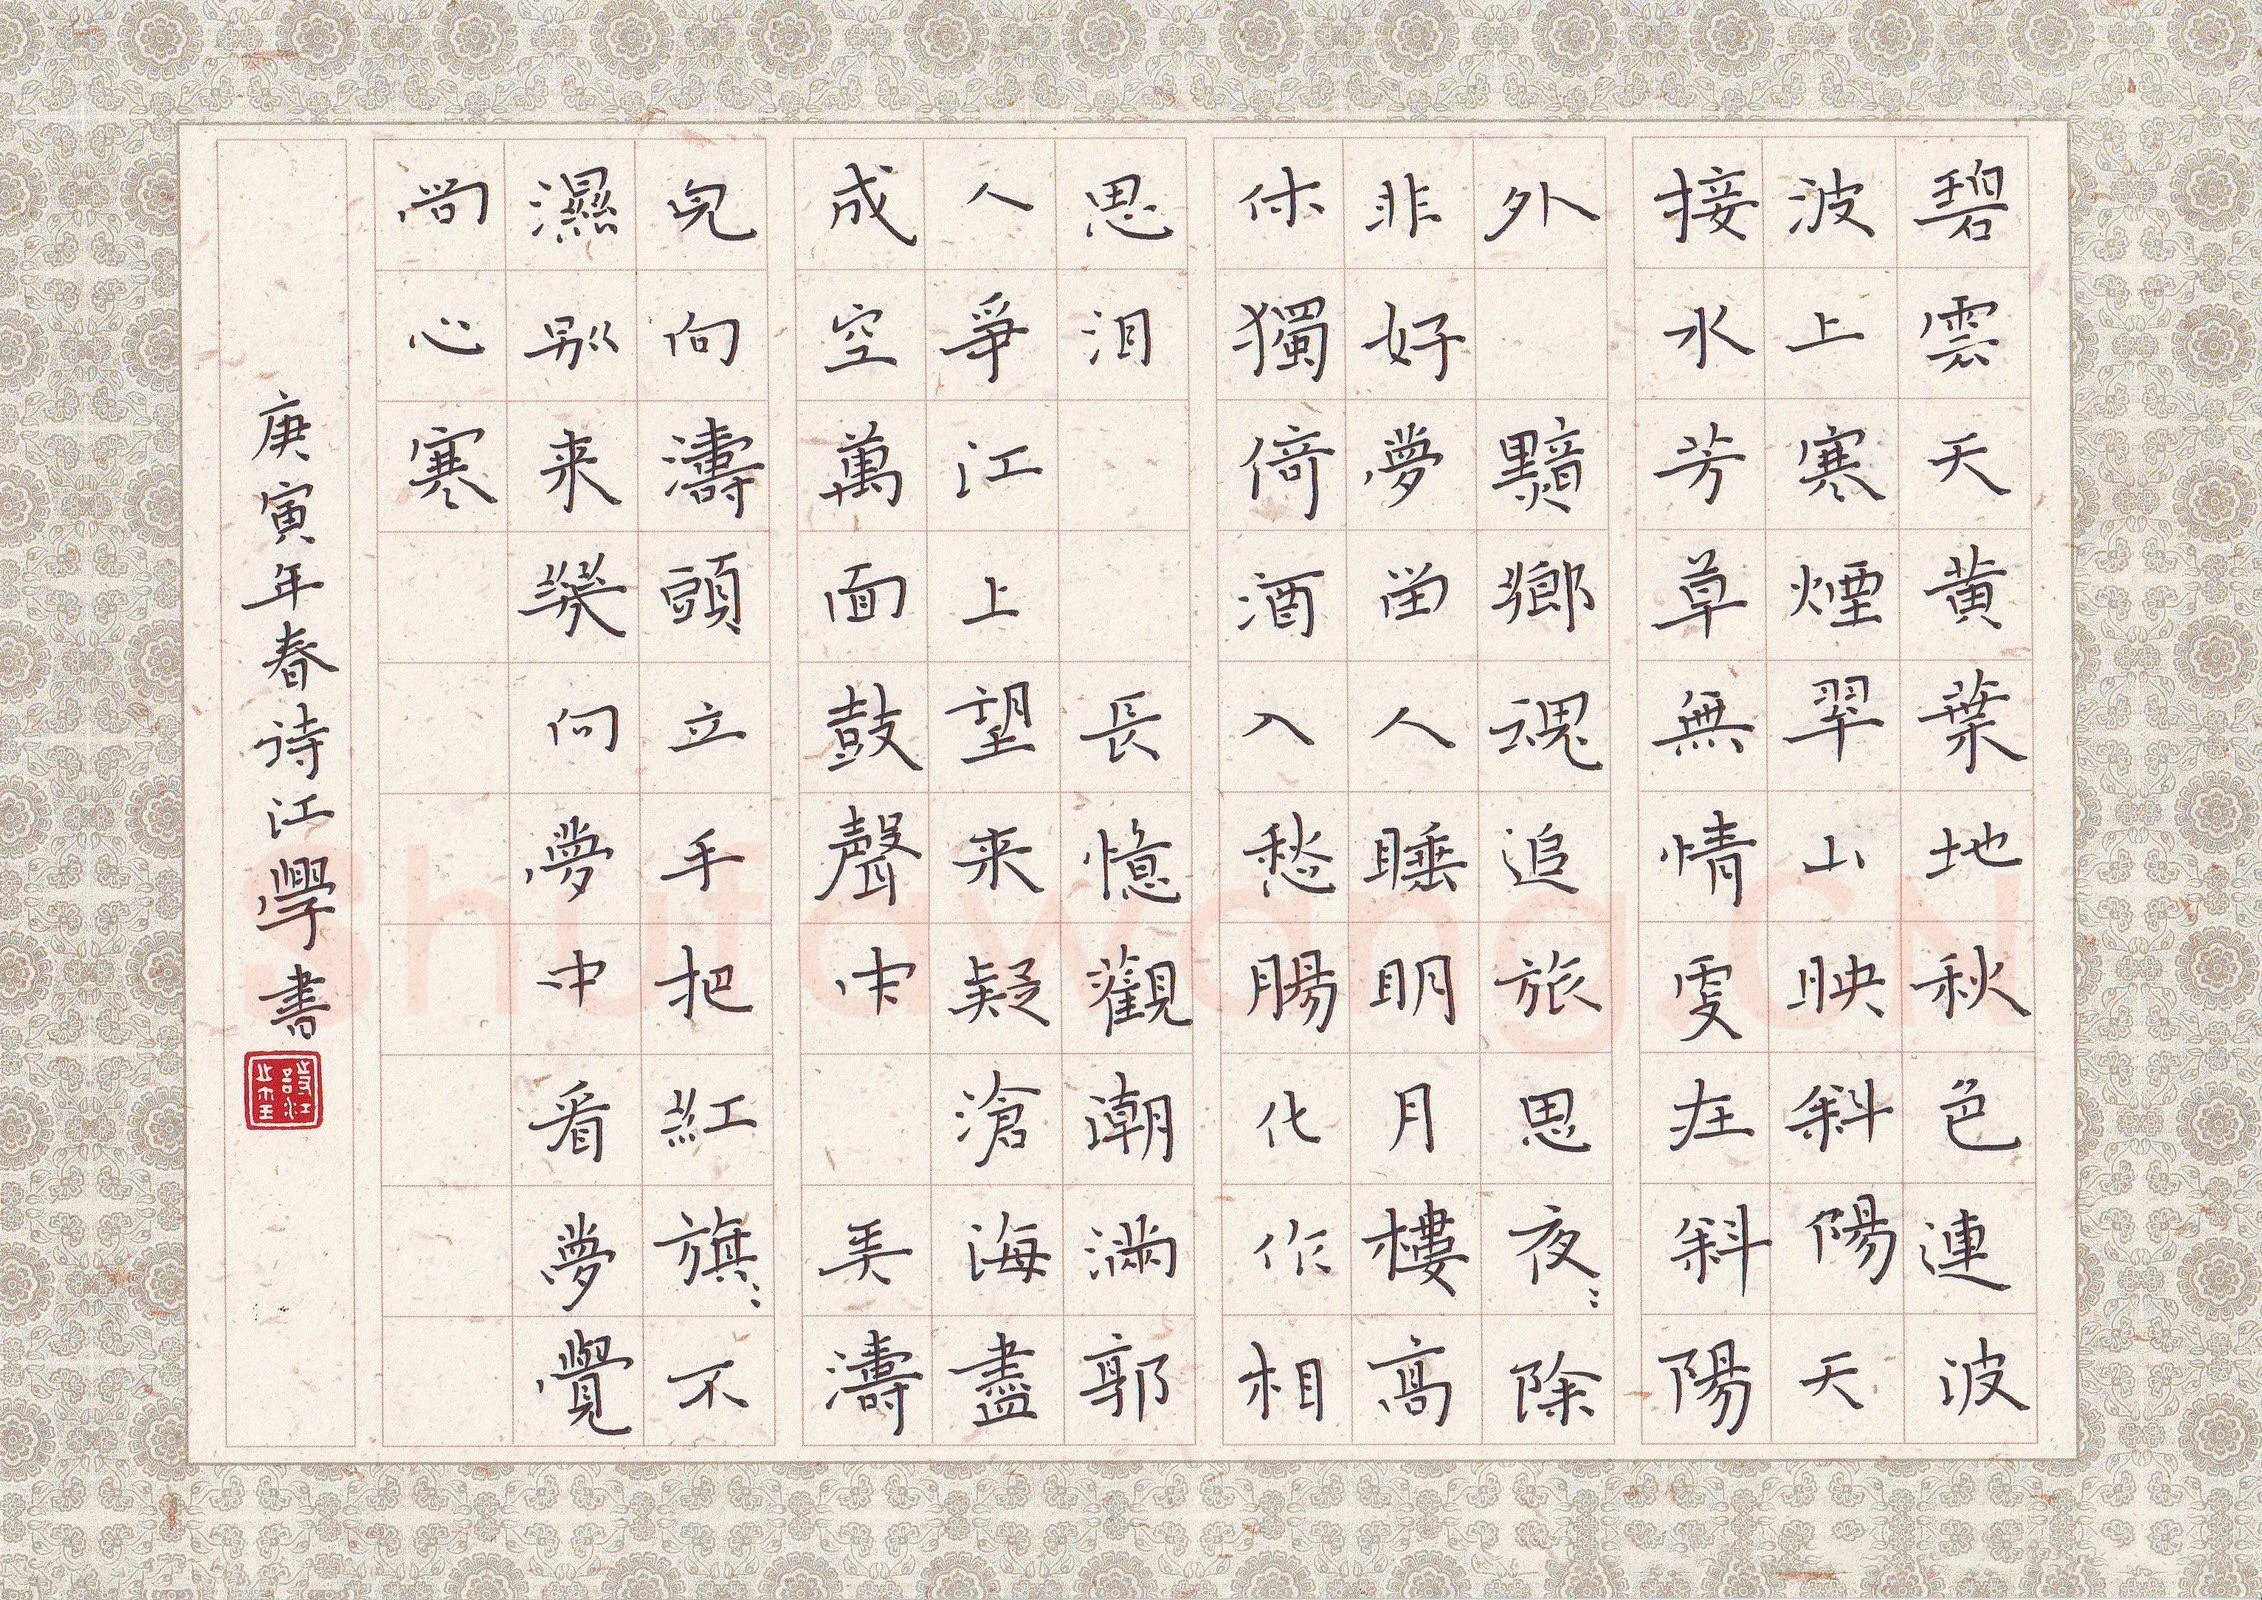 碧雲天黄葉地秋色連波
波上寒煙翠山映斜陽天
接水芳草無情更在斜陽
外 黯鄉魂追旅思夜:除
非好夢留人睡明月樓高
休獨倚酒入愁腸化作相
思泪 長憶觀潮滿郭
人爭江上望来疑滄海盡
成空萬面鼓聲中 弄濤
兒向濤頭立手把紅旗:不
濕別来幾向夢中看夢覺
尚心寒
庚寅年春诗江學書
Shufawang.CN